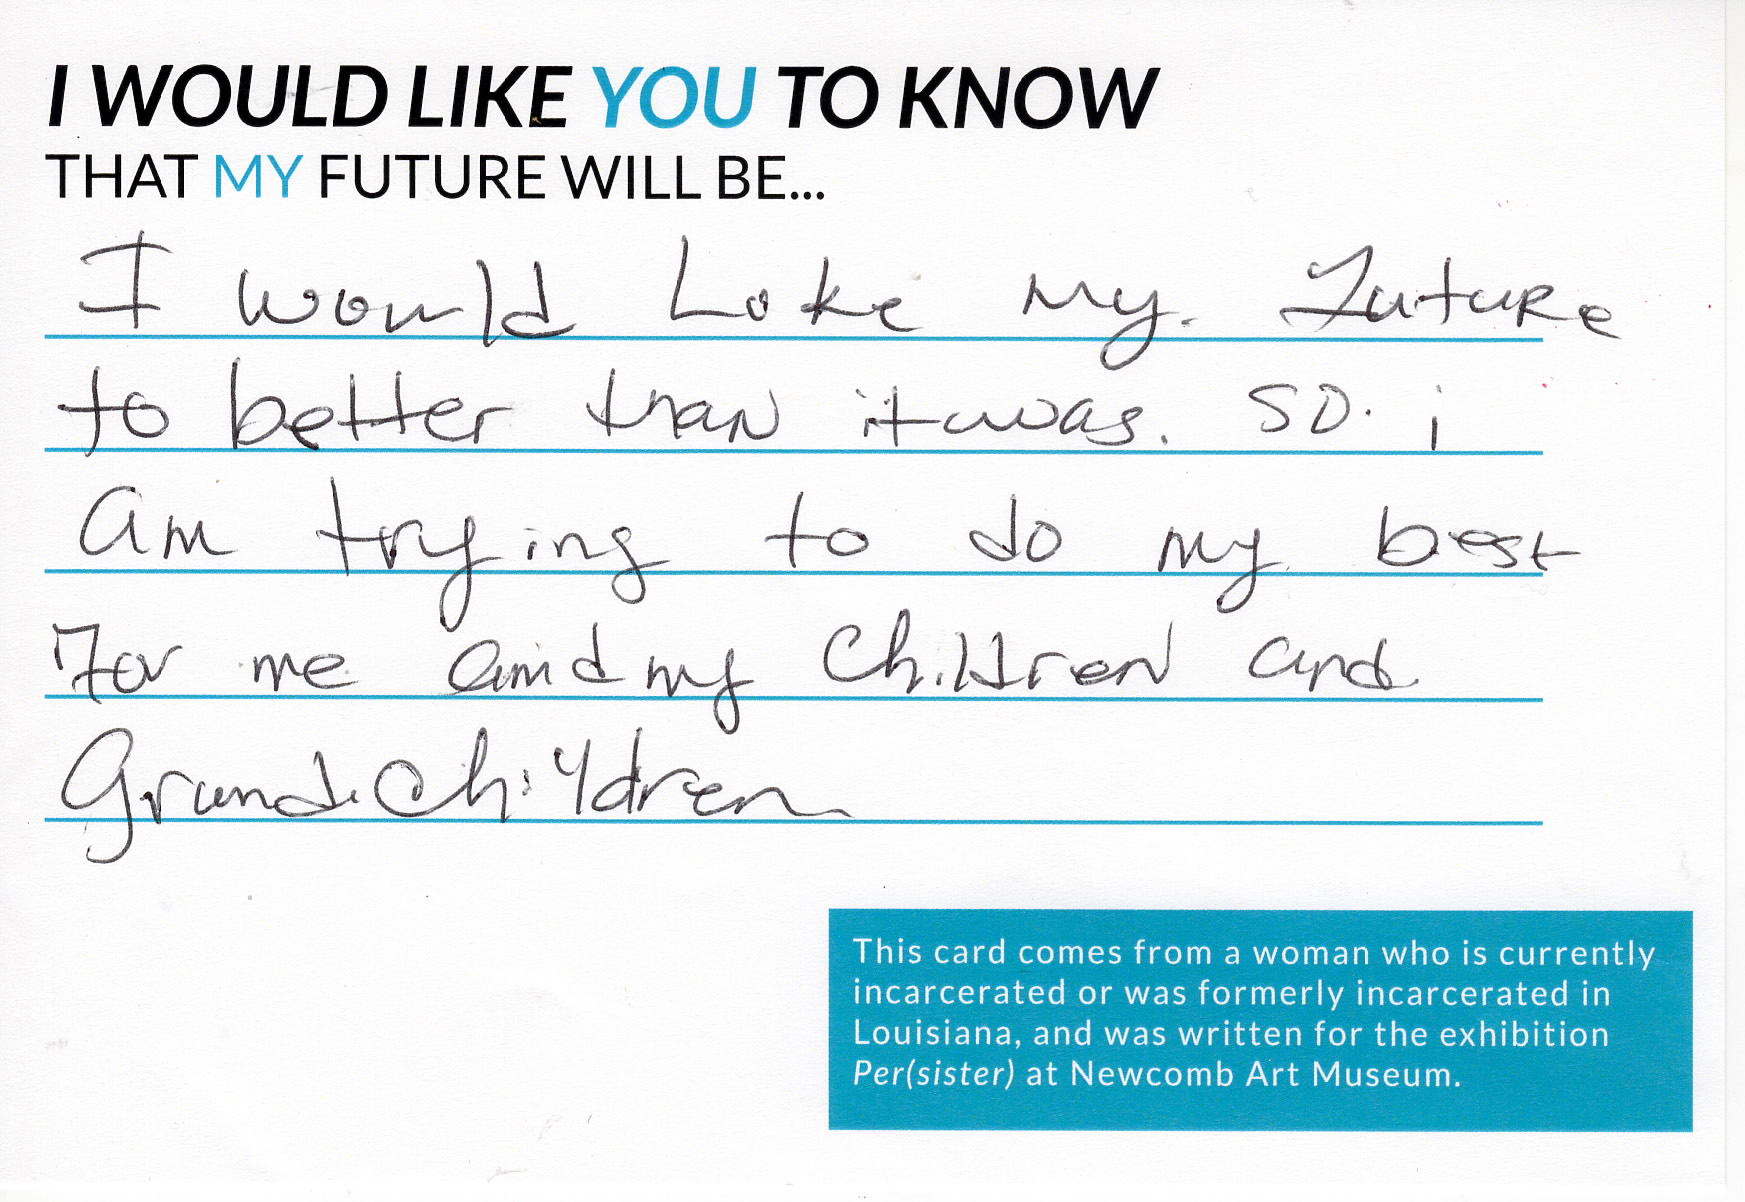 I WOULD LIKE YOU TO KNOW
THAT MY FUTURE WILL BE...
I would Loke my. Future
to better than it was. SO. i
am trying to do my best
For me amd my Children and
Grand.Children
This card comes from a woman who is currently
incarcerated or was formerly incarcerated in
Louisiana, and was written for the exhibition
Per(sister) at Newcomb Art Museum.